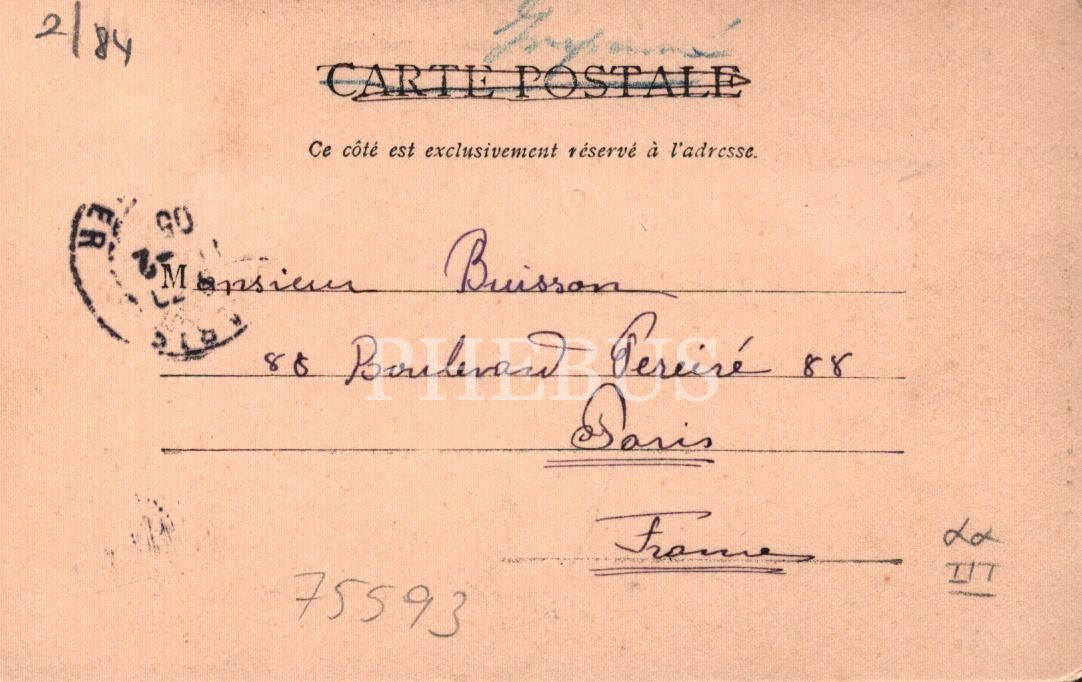 2/84
Imprimé
CARTE POSTALE
Ce côté est exclusivement réservé à l'adresse.
05
ER
Monsieur Buisson
88 Boulevard Pereire 88
PHEBUS
Paris
France
75593
III